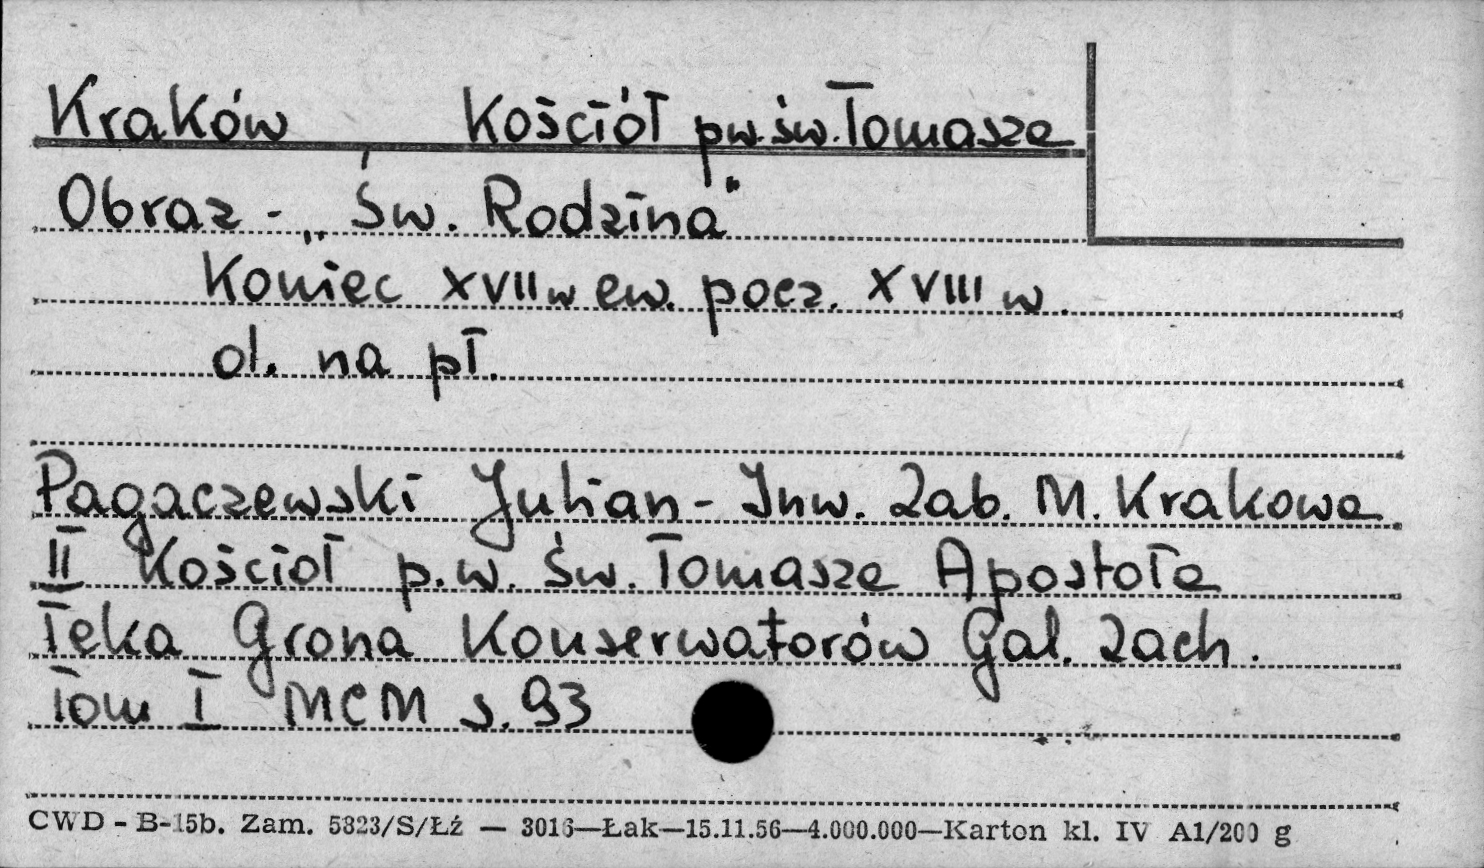 Kraków Kościół pw. św. Tomasza
Obraz - „Św. Rodzina"
Koniec XVII w ew. pocz. XVIII w.
ol. na pł.
Pagaczewski Julian - Inw. Zab. M. Krakowa
II Kościoł p.w. Św. Tomasza Apostoła
Teka Grona Konserwatorów Gal. Zach.
Tom I MCM s. 93
CWD - B-15b. Zam. 5823/S/Łź — 3016—Łak—15.11.56—4.000.000—Karton kl. IV A1/200 g